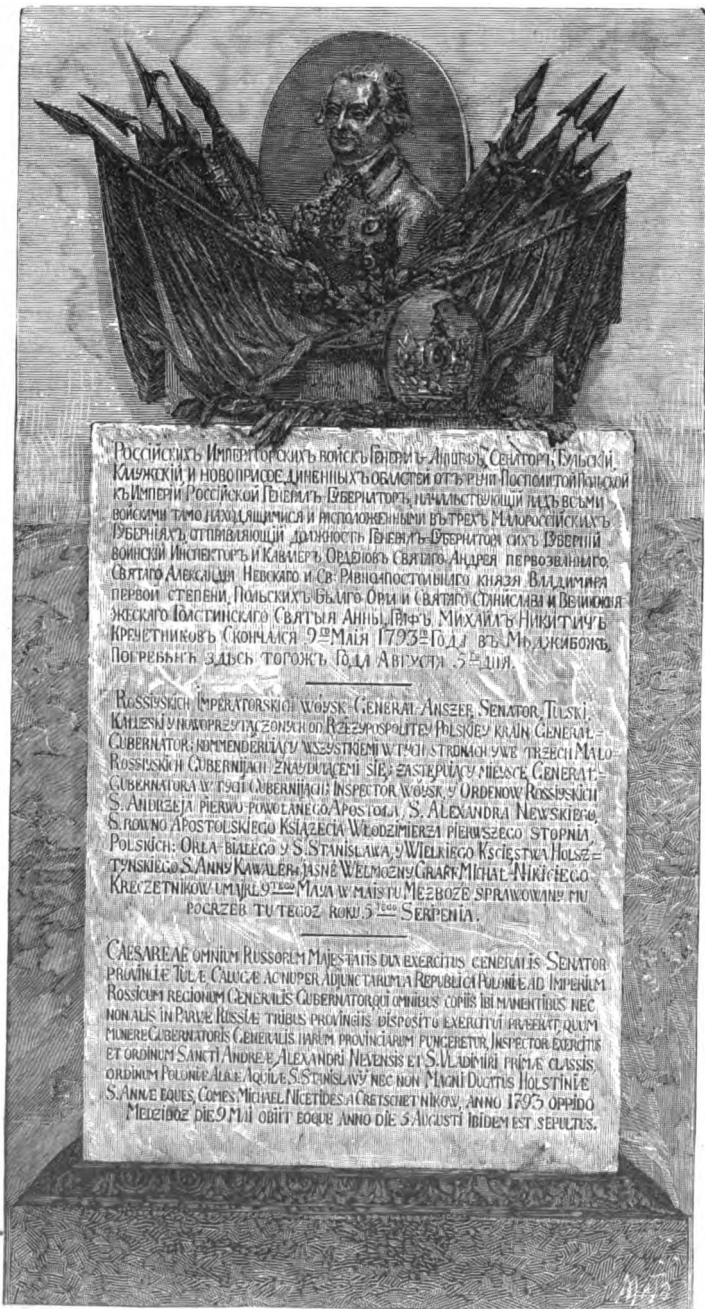 Россійскихъ Императорскихъ войскъ Генералъ-Аншефъ, Сенаторъ, Тульскій,
Калужскій, и новоприсоединенныхъ областей отъ Речи Посполитой Польской
къ Имперіи Россійской Генералъ-Губернаторъ, начальствующій надъ всѣми
войсками тамо находящимися и расположенными въ трехъ Малороссійскихъ
Губерніяхъ, отправляющій должность Генералъ-Губернатора сихъ Губерній
воинскій Инспекторъ и Кавалеръ Орденовъ Святаго Андрея первозваннаго,
Святаго Александра Невскаго и Св. Равноапостольнаго князя Владимира
первой степени, Польскихъ: Бѣлаго Орла и Святаго Станислава и Великокня
жескаго Голстинскаго Святыя Анны, Графъ Михаилъ Никитичъ
Кречетниковъ Скончался 9го Маія 1793го Года въ Меджибожѣ,
Погребенъ здѣсь тогожъ Года Августа 5го дня.
Rossiyskich Imperatorskich woysk Generał Anszef, Senator, Tulski,
Kałuzski y nowoprzyłączonych od Rzeżypospolitey Polskiey krain Generał-
Gubernator; kommenderuiący wszystkiemi w tych stronach y we trzech Mało-
Rossiyskich Gubernijach znayduiącemi się; zastępuiący mieysce Generał-
Gubernatora w tych Gubernijach; Inspector woysk, y Ordenow Rossiyskich
S. Andrzeja pierwo powołanego Apostoła, S. Alexandra Newskiego,
S. rowno Apostolskiego Książęcia Włodzimierza pierwszego stopnia,
Polskich: Orła białego y S. Stanisława, y Wielkiego Kscięstwa Holsz=
tynskiego S. Anny Kawaler, jasnê Welmożny Graff Michał Nikiciego
Kreczetnikow umarł 9tego Maya w maistu Mezboże sprawowany mu
pogrzeb tu tegoz roku 5tego Seripenia.
Caesareae omnium Russorum Majestatis dux exercitus generalis Senator
provinciæ Tulæ Calugæ ac nuper adjunctarum a Republica Poloniæ ad Imperium
Rossicum regionum Generalis Gubernator qui omnibus copiis ibi manentibus nec
non alis in Parvæ Russiæ tribus provinciis disposito exercitui præerat, quum
munere Gubernatoris Generalis harum provinciarum pungeretur, Inspector exercitus
et ordinum Sancti Andreæ, Alexandri Nevensis et S. Vladimiri primæ classis,
ordinum Poloniæ Albæ Aquilæ S. Stanislavy nec non Magni Ducatus Holstiniæ
S. Annæ eques, Comes Michael Nicetides a Cretschetnikow, anno 1793 oppido
Medziboz die 9 Mai obiit eoque anno die 5 Augusti ibidem est sepultus.